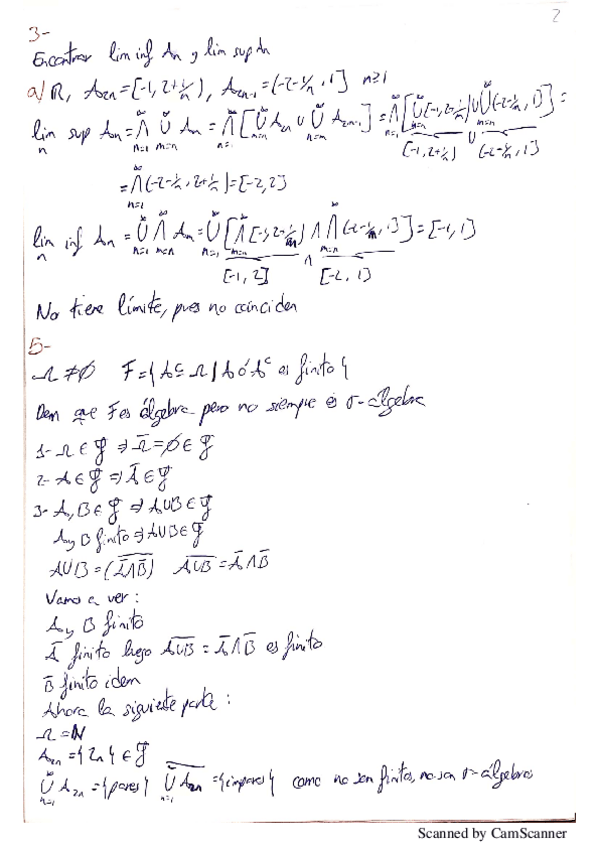 2
3-
Encontrar lim inf An y lim sup An
a/ ℝ, A₂ₙ=[-1, 2+1/n), A₂ₙ₋₁=(-2-1/n, 1] n≥1
lim sup An = ⋂_{n=1}^∞ ⋃_{m=n}^∞ Am = ⋂_{n=1}^∞ [⋃_{m=n}^∞ A₂ₙ ∪ ⋃_{n=m}^∞ A₂ₙ₋₁] = ⋂_{n=1}^∞ [⋃_{m=n}^∞ [-1, 2+1/n) ∪ ⋃_{m=n}^∞ (-2-1/n, 1]] =
[-1, 2+1/n) ∪ (-2-1/n, 1]
= ⋂_{n=1}^∞ (-2-1/n, 2+1/n) = [-2, 2]
lim inf An = ⋃_{n=1}^∞ ⋂_{m=n}^∞ Am = ⋃_{n=1}^∞ [⋂_{m=n}^∞ [-1, 2+1/m) ∩ ⋂_{m=n}^∞ (-2-1/m, 1]] = [-1, 1]
[-1, 2] ∩ [-2, 1]
No tiene límite, pues no coinciden
5-
Ω ≠ ∅ F={A⊆Ω | A ó Aᶜ es finito}
Dem que F es álgebra pero no siempre es σ-álgebra
1- Ω ∈ F ⇒ Ω̄ = ∅ ∈ F
2- A ∈ F ⇒ Ā ∈ F
3- A, B ∈ F ⇒ A∪B ∈ F
A y B finito ⇒ A∪B ∈ F
A∪B = (Ā∩B̄)‾ (A∪B)‾ = Ā∩B̄
Vamos a ver:
A y B finito
Ā finito luego (A∪B)‾ = Ā∩B̄ es finito
B̄ finito idem
Ahora la siguiente parte:
Ω = ℕ
A₂ₙ = {2n} ∈ F
⋃_{n=1}^∞ A₂ₙ = {pares} (⋃_{n=1}^∞ A₂ₙ)‾ = {impares} como no son finitos, no son σ-álgebras
Scanned by CamScanner